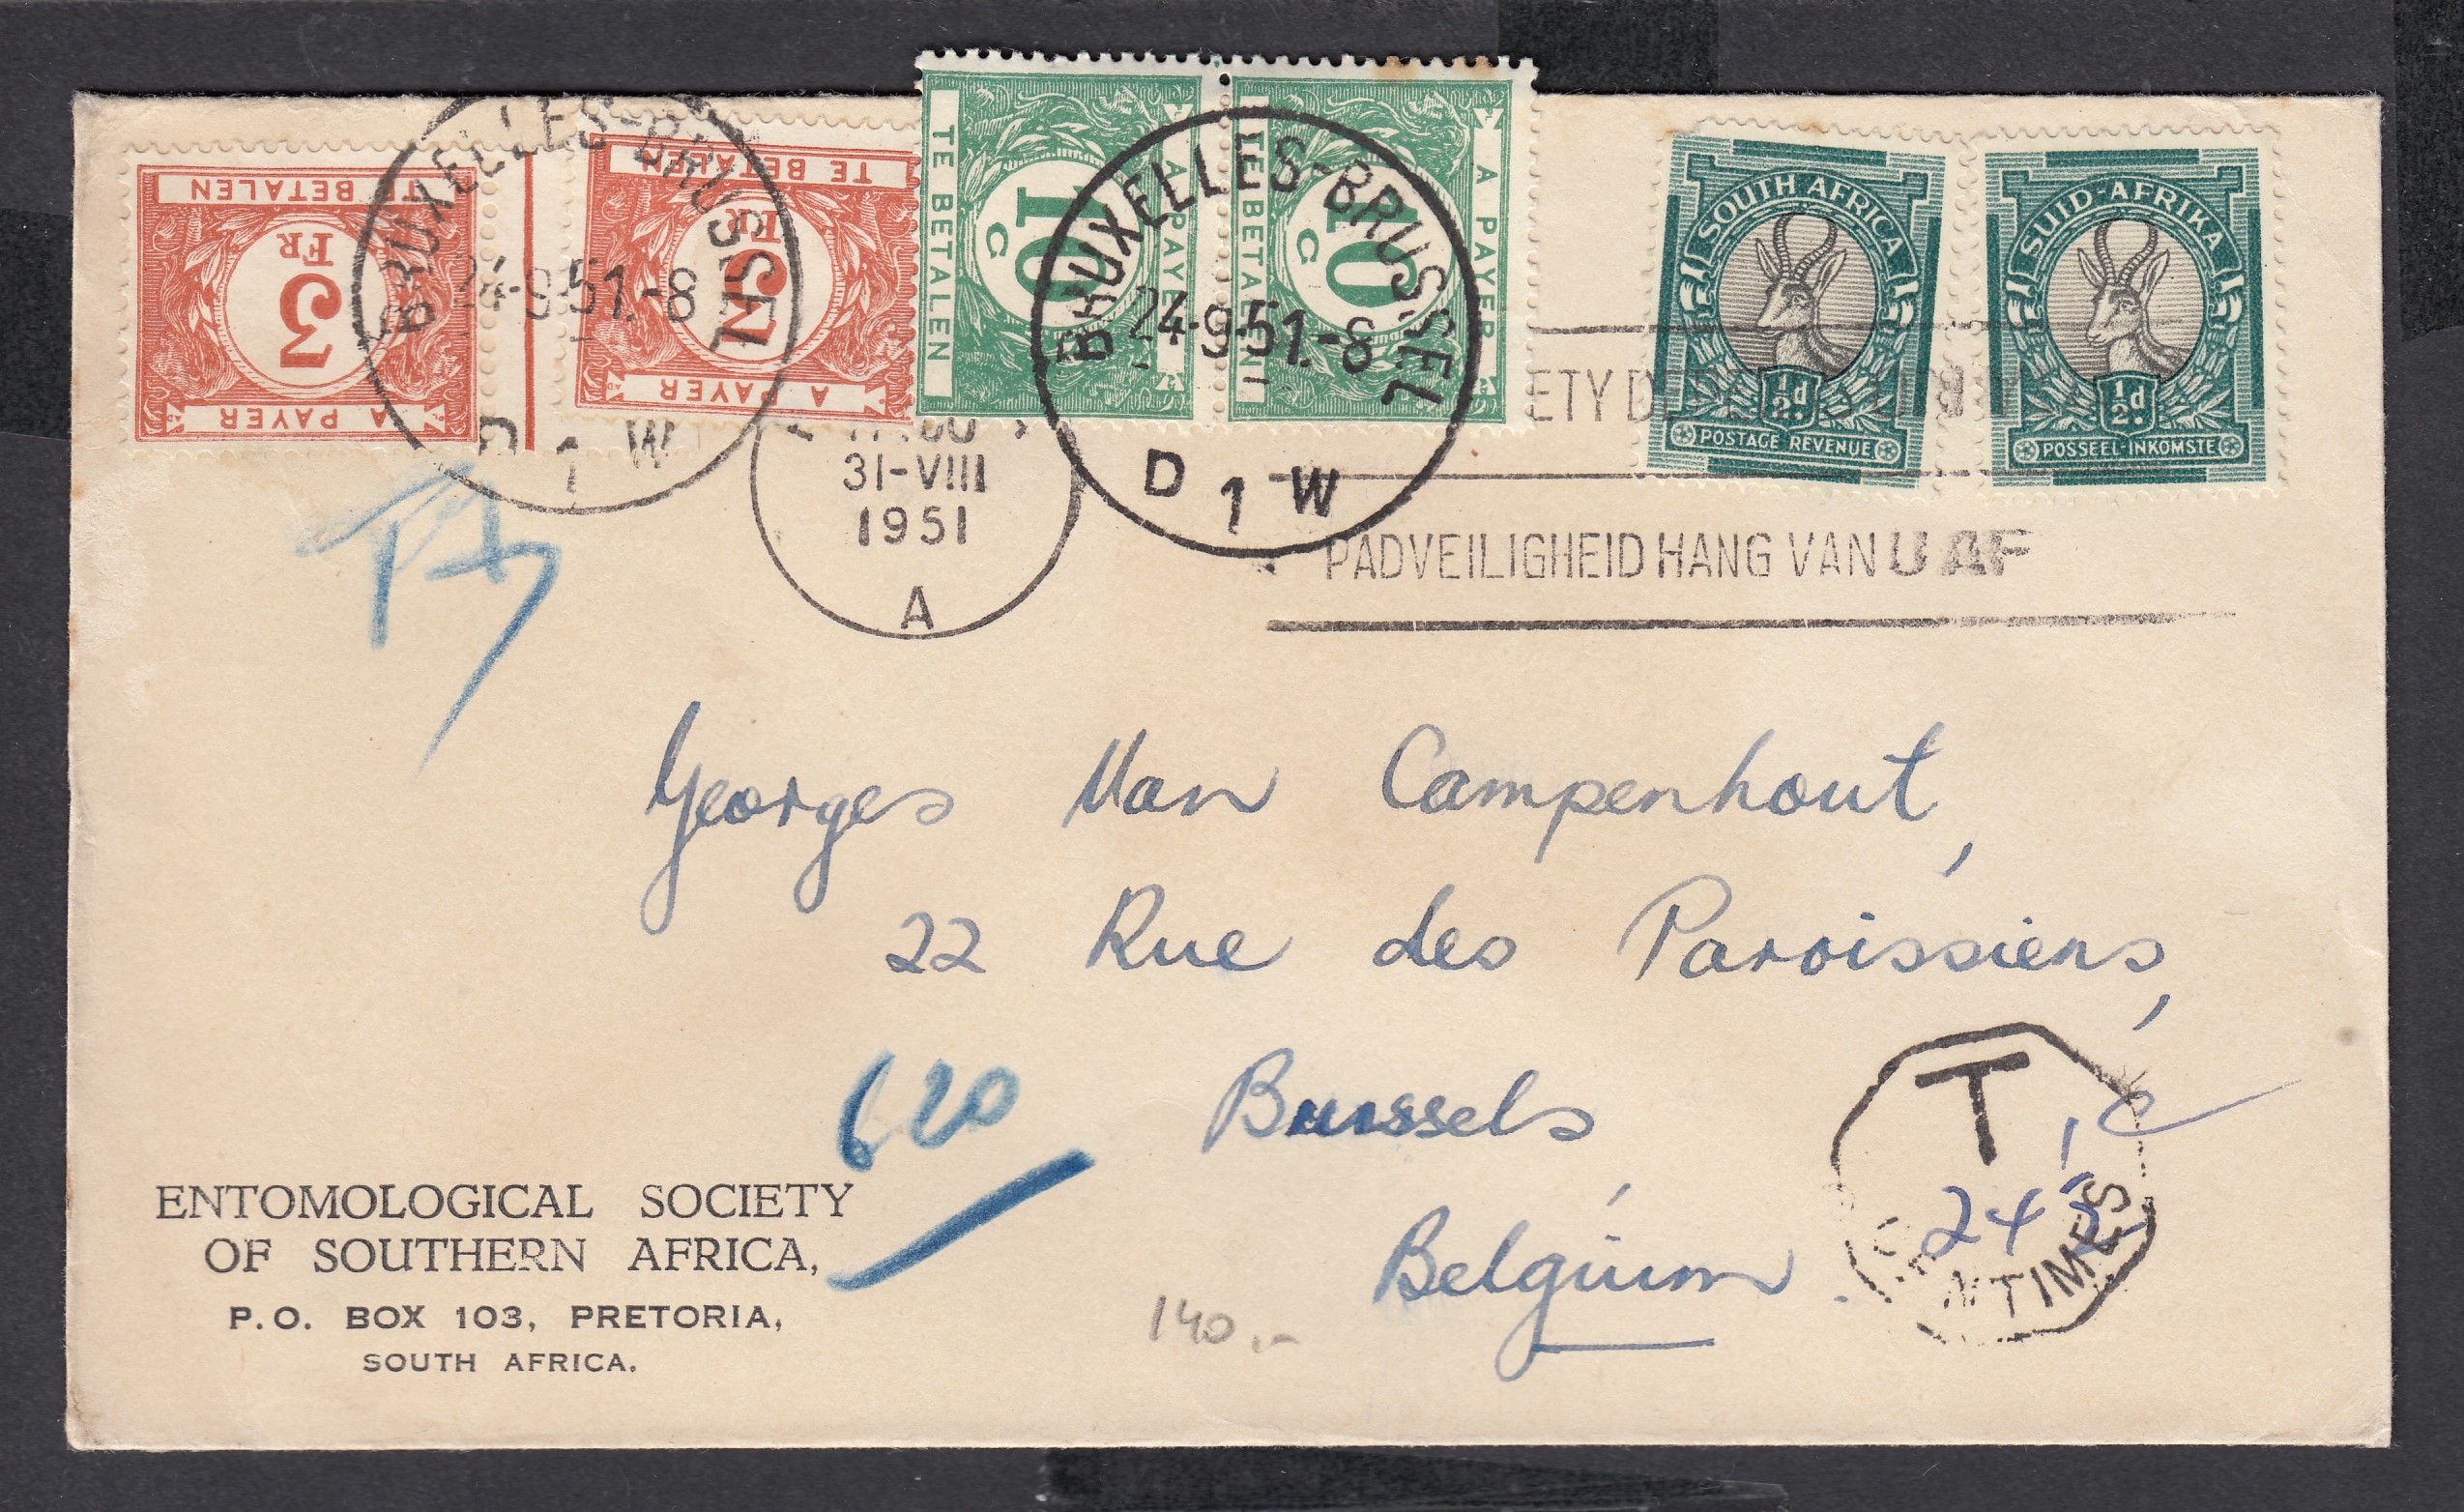 TE BETALEN
3
FR
A PAYER
TE BETALEN
3
FR
A PAYER
TE BETALEN
10
C
A PAYER
TE BETALEN
10
C
A PAYER
BRUXELLES-BRUSSEL
24-9-51.-8
D 1 W
BRUXELLES-BRUSSEL
24-9-51.-8
D 1 W
SOUTH AFRICA
½d
POSTAGE REVENUE
SUID-AFRIKA
½d.
POSSEEL-INKOMSTE
31-VIII
1951
A
PADVEILIGHEID HANG VAN U AF
Georges Van Campenhout,
22 Rue des Paroissiens,
Brussels,
Belgium
620
T
CENTIMES
140.-
ENTOMOLOGICAL SOCIETY
OF SOUTHERN AFRICA,
P.O. BOX 103, PRETORIA,
SOUTH AFRICA.